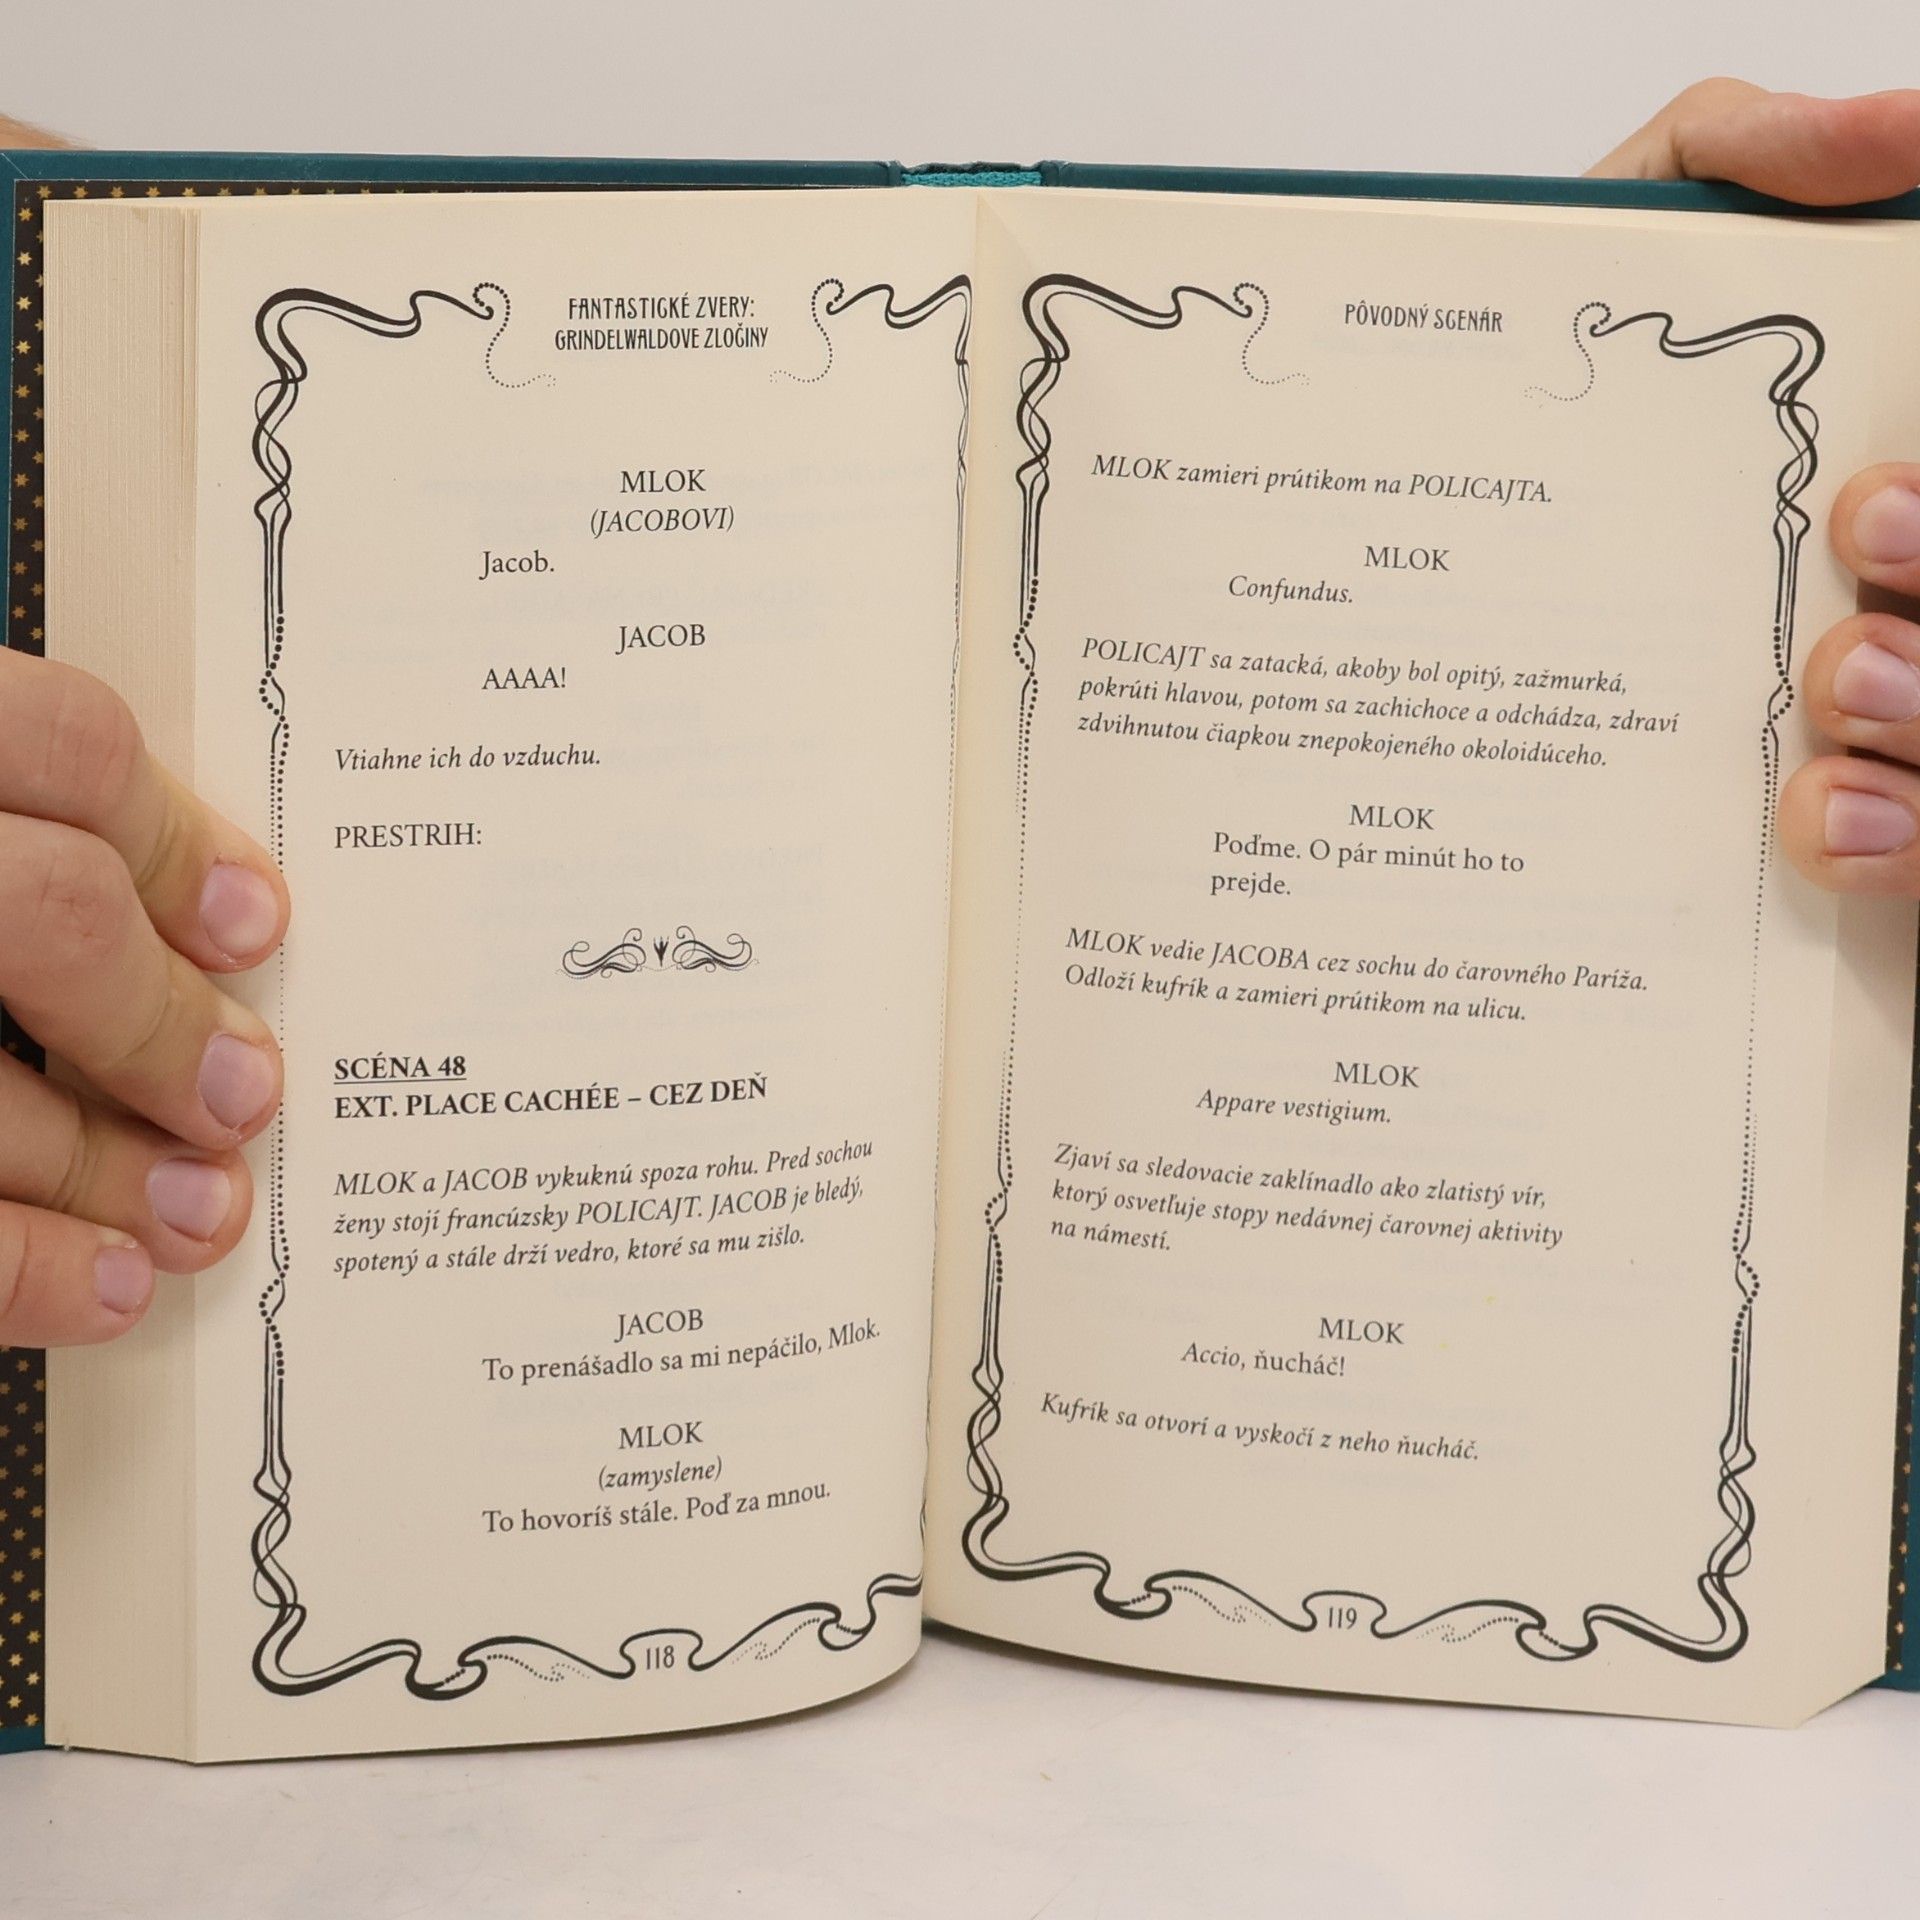 FANTASTICKÉ ZVERY:
GRINDELWALDOVE ZLOČINY
MLOK
(JACOBOVI)
Jacob.
JACOB
AAAA!
Vtiahne ich do vzduchu.
PRESTRIH:
SCÉNA 48
EXT. PLACE CACHÉE – CEZ DEŇ
MLOK a JACOB vykuknú spoza rohu. Pred sochou
ženy stojí francúzsky POLICAJT. JACOB je bledý,
spotený a stále drží vedro, ktoré sa mu zišlo.
JACOB
To prenášadlo sa mi nepáčilo, Mlok.
MLOK
(zamyslene)
To hovoríš stále. Poď za mnou.
118
PÔVODNÝ SCENÁR
MLOK zamieri prútikom na POLICAJTA.
MLOK
Confundus.
POLICAJT sa zatacká, akoby bol opitý, zažmurká,
pokrúti hlavou, potom sa zachichoce a odchádza, zdraví
zdvihnutou čiapkou znepokojeného okoloidúceho.
MLOK
Poďme. O pár minút ho to
prejde.
MLOK vedie JACOBA cez sochu do čarovného Paríža.
Odloží kufrík a zamieri prútikom na ulicu.
MLOK
Appare vestigium.
Zjaví sa sledovacie zaklínadlo ako zlatistý vír,
ktorý osvetľuje stopy nedávnej čarovnej aktivity
na námestí.
MLOK
Accio, ňucháč!
Kufrík sa otvorí a vyskočí z neho ňucháč.
119